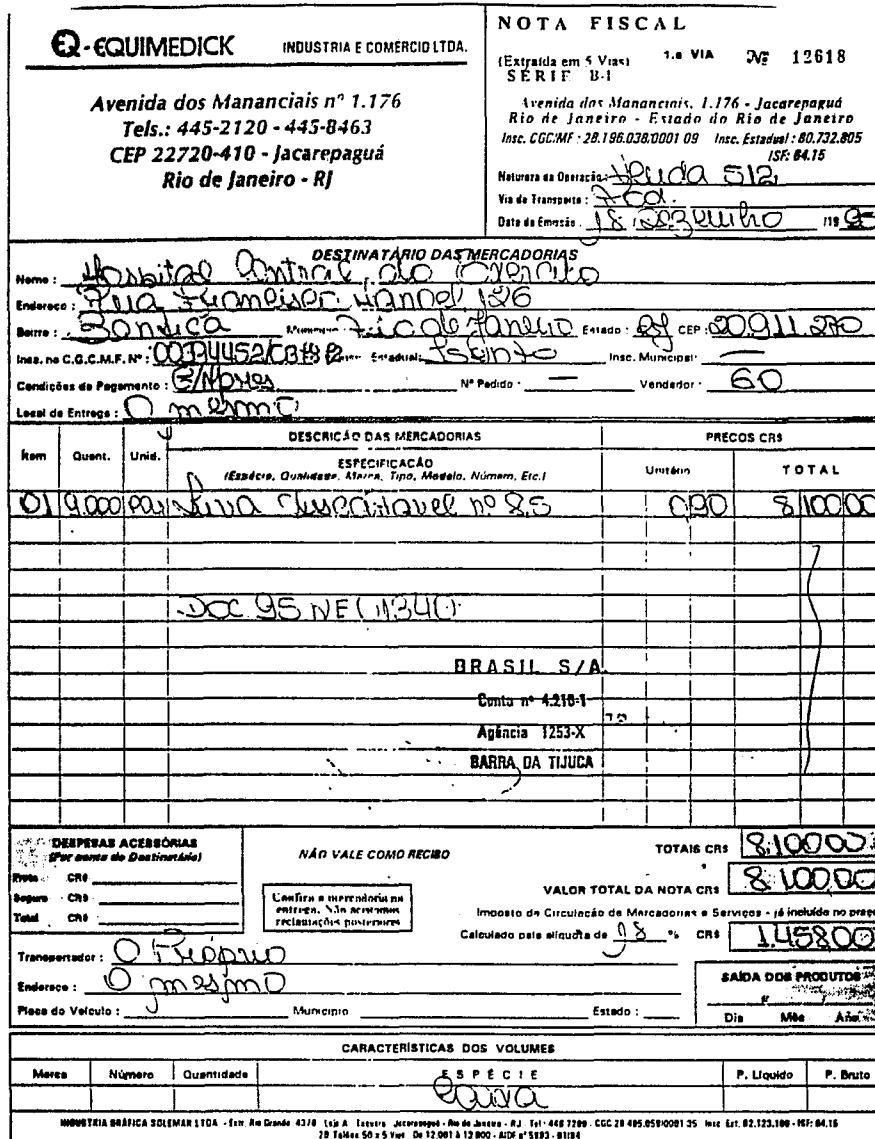 EQ-EQUIMEDICK INDUSTRIA E COMERCIO LTDA.
Avenida dos Mananciais nº 1.176
Tels.: 445-2120 - 445-8463
CEP 22720-410 - Jacarepaguá
Rio de Janeiro - RJ
NOTA FISCAL
(Extraída em 5 Vias) 1.a VIA Nº 12618
SÉRIE B-1
Avenida dos Mananciais, 1.176 - Jacarepaguá
Rio de Janeiro - Estado do Rio de Janeiro
Insc. CGC/MF : 28.196.038/0001 09 Insc. Estadual : 80.732.805
ISF: 64.15
Natureza da Operação: Venda 512
Via de Transporte : Rod.
Data da Emissão : 18 / Dezembro /19 95
DESTINATÁRIO DAS MERCADORIAS
Nome : Hospital Central do Exército
Endereço : Rua Francisco Manoel, 126
Bairro : Benfica Município Rio de Janeiro Estado : RJ CEP : 20.911.270
Insc. no C.G.C.M.F. Nº : Estadual: Isento Insc. Municipal: —
Condições de Pagamento : Nº Pedido : — Vendedor : 60
Local de Entrega : O mesmo
DESCRIÇÃO DAS MERCADORIAS PREÇOS CR$
Item Quant. Unid. ESPECIFICAÇÃO Unitário TOTAL
(Espécie, Qualidade, Marca, Tipo, Modelo, Número, Etc.)
01 9.000 par Luva Descartavel nº 8,5 0,90 8.100,00
DOC. 95 NE
BRASIL S/A.
Conta nº 4.218-1
Agência 1253-X
BARRA DA TIJUCA
DESPESAS ACESSÓRIAS
(Por conta do Destinatário)
Frete CR$
Seguro CR$
Total CR$
NÃO VALE COMO RECIBO
Confira a mercadoria na
entrega. Não aceitamos
reclamações posteriores
TOTAIS CR$ 8.100,00
VALOR TOTAL DA NOTA CR$ 8.100,00
Imposto de Circulação de Mercadorias e Serviços - já incluído no preço
Calculado pela alíquota de 18 % CR$ 1.458,00
Transportador : O Próprio
Endereço : O mesmo
Placa do Veículo : Município Estado :
SAÍDA DOS PRODUTOS
Dia Mês Ano
CARACTERÍSTICAS DOS VOLUMES
Marca Número Quantidade ESPÉCIE P. Líquido P. Bruto
Caixa
INDUSTRIA GRÁFICA SOLEMAR LTDA - Estr. Rio Grande 4378 Loja A Taquara Jacarepaguá - Rio de Janeiro - RJ Tel: 446 7299 - CGC 28 495.059/0001 35 Insc. Est. 82.123.100 - ISF: 64.15
20 Talões 50 x 5 Vias De 12.001 à 12 800 - AIDF nº 5193 - 01/94